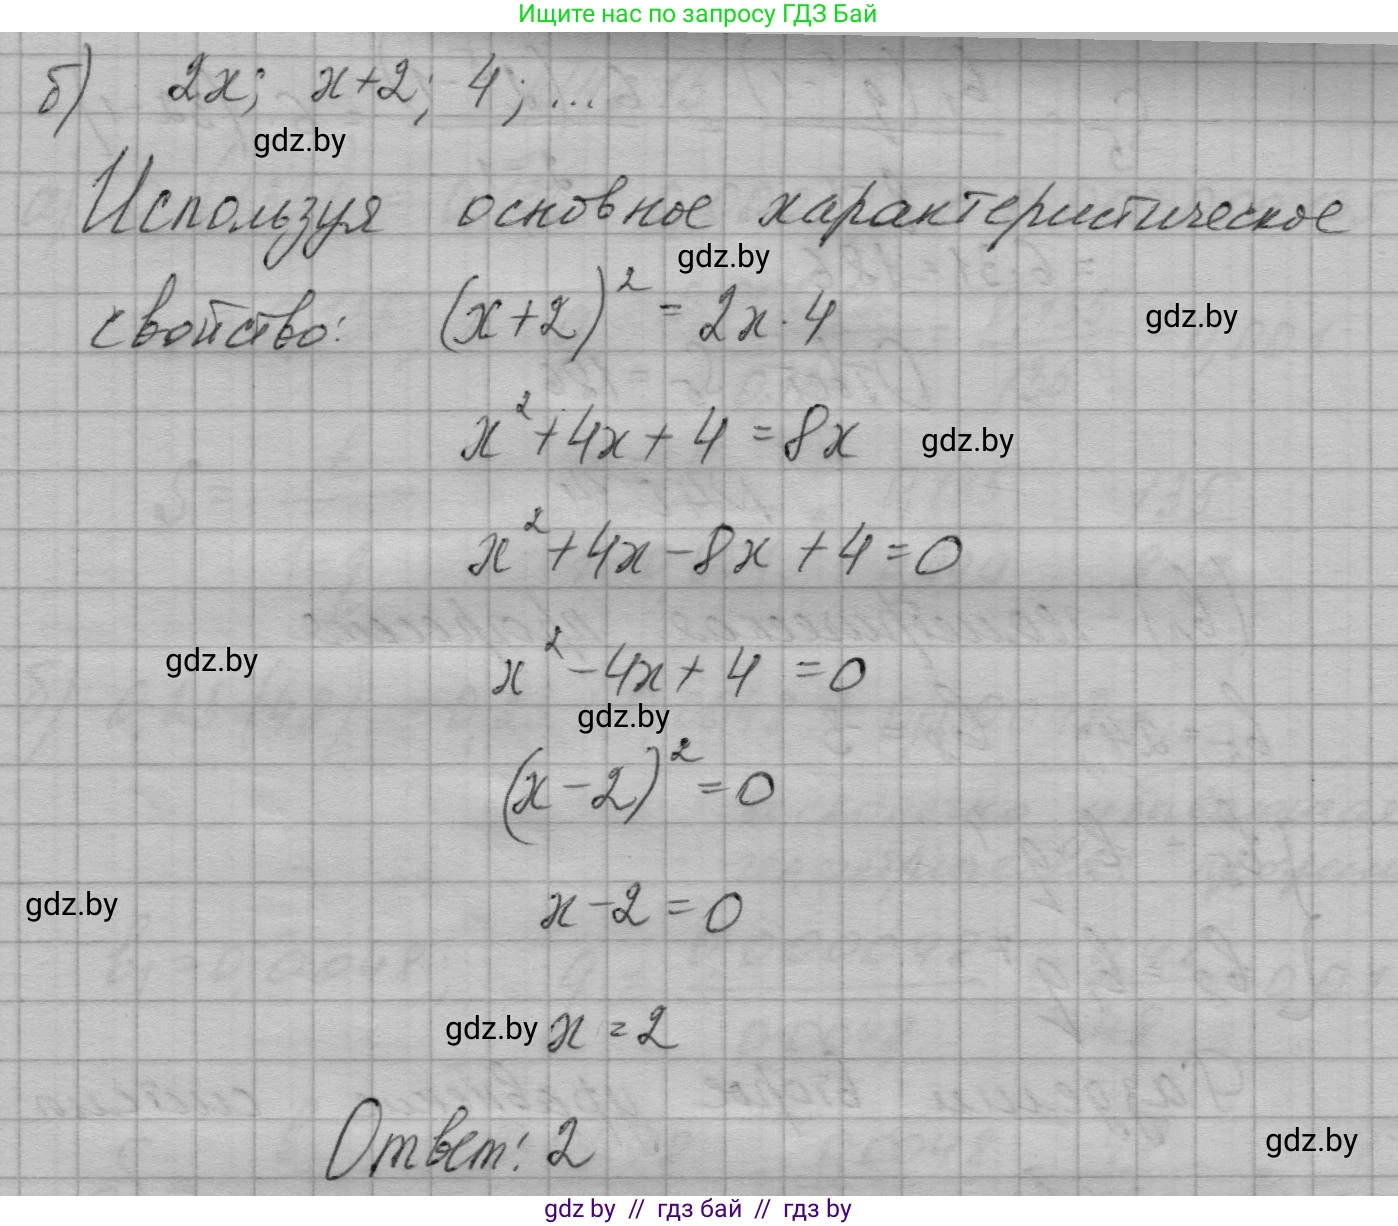 Ищите нас по запросу ГДЗ Бай
б) 2x; x+2; 4; ...
gdz.by
Используя основное характеристическое
gdz.by
свойство: (x+2)² = 2x·4
gdz.by
x²+4x+4=8x
gdz.by
x²+4x-8x+4=0
gdz.by
x²-4x+4=0
gdz.by
(x-2)²=0
gdz.by
x-2=0
gdz.by
x=2
Ответ: 2
gdz.by
gdz by // гдз бай // гдз by